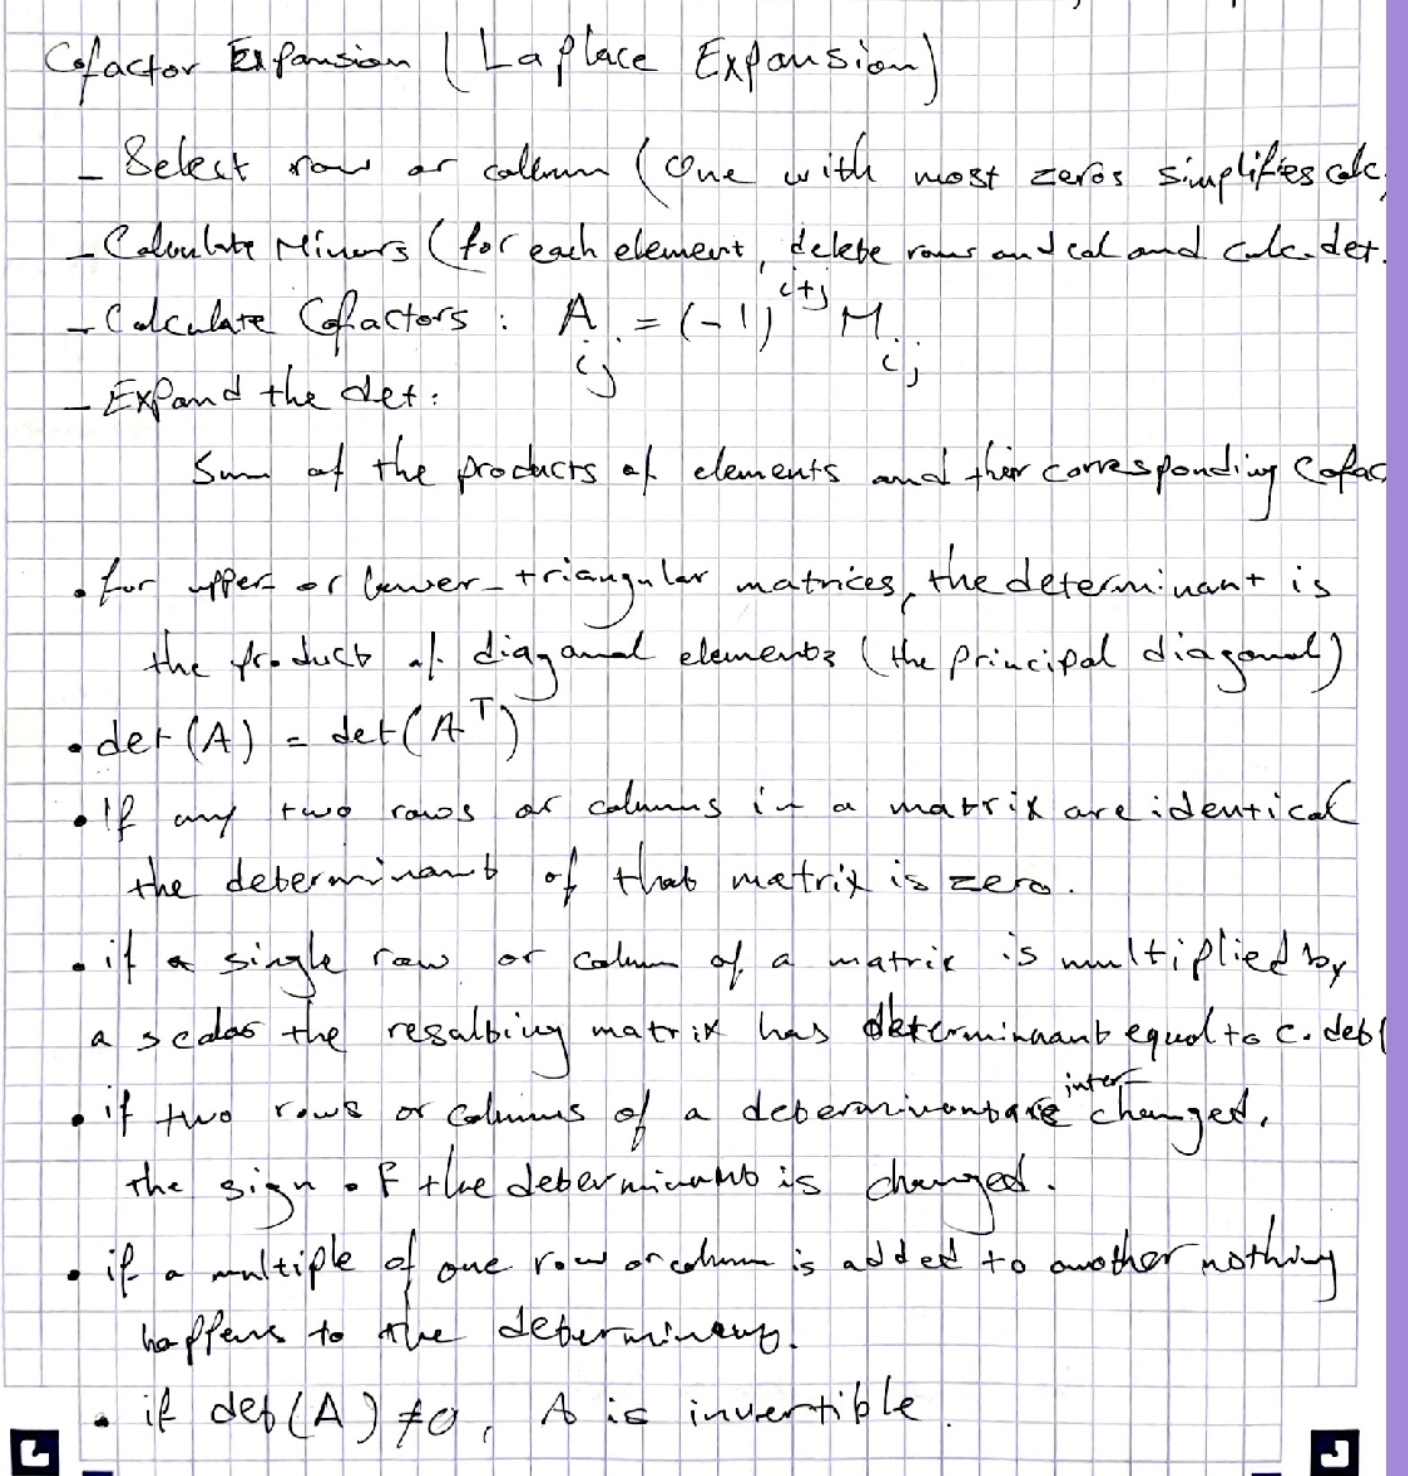 Cofactor Expansion (Laplace Expansion)
- Select row or collumn (One with most zeros simplifies calc.
- Calculate Minors (for each element, delete rows and col and calc. det.
- Calculate Cofactors : A_ij = (-1)^i+j M_ij
- Expand the det:
Sum of the products of elements and their corresponding Cofac
• for upper- or lower-triangular matrices, the determinant is
the product of diagonal elements (the principal diagonal)
• det(A) = det(A^T)
• If any two rows or columns in a matrix are identical
the determinant of that matrix is zero.
• if a single row or column of a matrix is multiplied by
a scalar the resulting matrix has determinnant equal to c. det(
• if two rows or columns of a determinant are interchanged,
the sign of the determinant is changed.
• if a multiple of one row or column is added to another nothing
happens to the determinant.
• if det(A) ≠ 0, A is invertible.